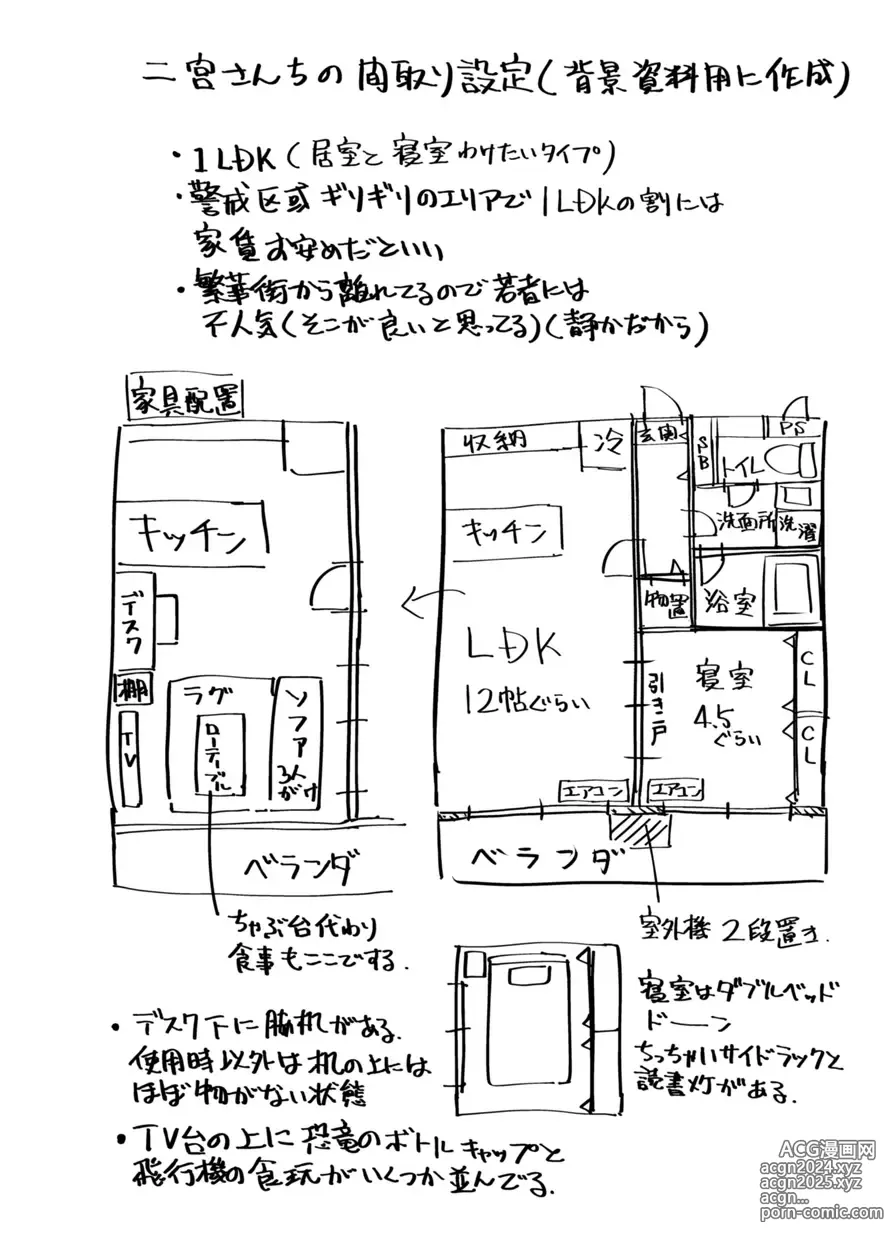 二宮さんちの間取り設定(背景資料用に作成)
・1LDK(居室と寝室わけたいタイプ)
・警戒区域ギリギリのエリアで1LDKの割には
家賃お安めだといい
・繁華街から離れてるので若者には
不人気(そこが良いと思ってる)(静かだから)
家具配置
キッチン
デスク
棚
TV
ラグ
ローテーブル
ソファ
3人がけ
ベランダ
ちゃぶ台代わり
食事もここでする.
収納
冷
玄関
SB
トイレ
PS
キッチン
洗面所
洗濯
物置
浴室
LDK
12帖ぐらい
引き戸
寝室
4.5
ぐらい
CL
CL
エアコン
エアコン
ベランダ
室外機 2段置き.
寝室はダブルベッド
ドーン
ちっちゃいサイドラックと
読書灯がある.
・デスク下に脇机がある.
使用時以外は机の上には
ほぼ物がない状態
・TV台の上に恐竜のボトルキャップと
飛行機の食玩がいくつか並んでる.
ACG漫画网
acgn2024.xyz
acgn2025.xyz
acgn...
porn-comic.com